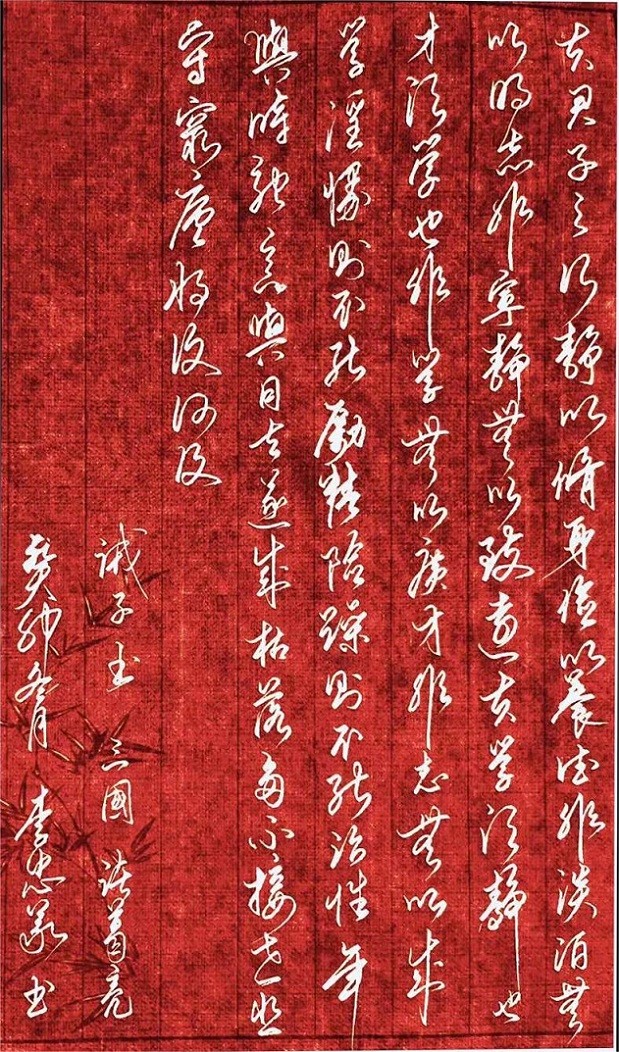 夫君子之行静以脩身俭以養德非淡泊無
以明志非宁静無以致远夫学须静也
才须学也非学無以广才非志無以成
学淫慢则不能励精险躁则不能治性年
與時驰意與日去遂成枯落多不接世悲
守穷庐将復何及
诫子书 三國 诸葛亮
癸卯冬月 李忠义 书